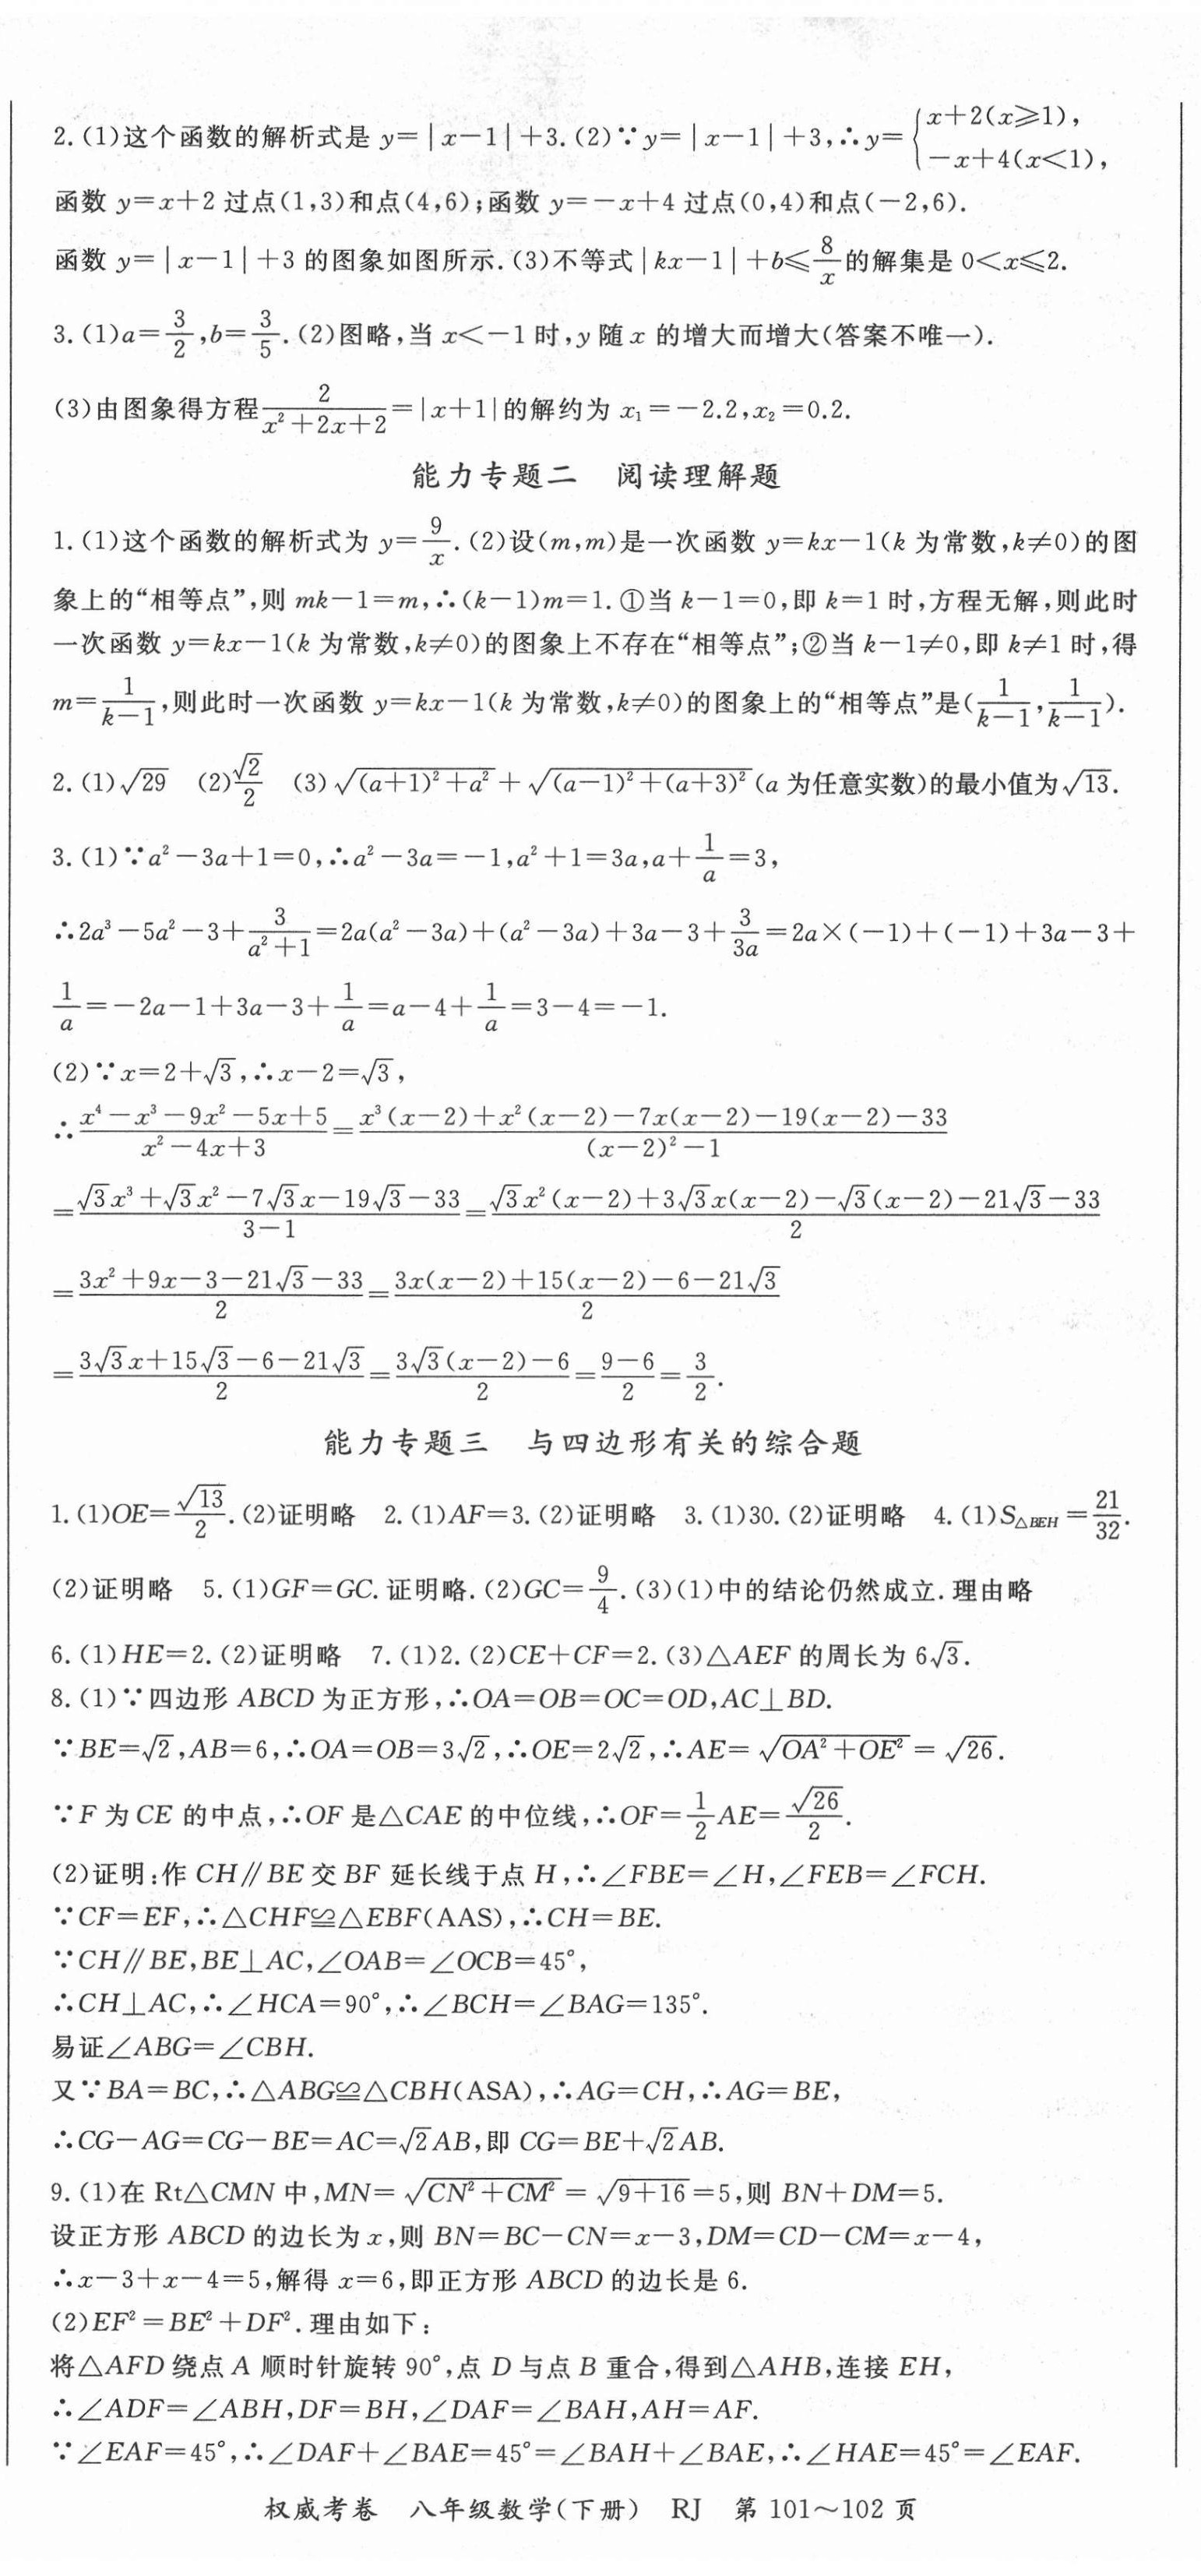 2.(1)这个函数的解析式是 y=|x-1|+3.(2)∵y=|x-1|+3,∴y={x+2(x≥1), -x+4(x<1),
函数 y=x+2 过点(1,3)和点(4,6);函数 y=-x+4 过点(0,4)和点(-2,6).
函数 y=|x-1|+3 的图象如图所示.(3)不等式|kx-1|+b≤8/x的解集是 0<x≤2.
3.(1)a=3/2,b=3/5.(2)图略,当 x<-1 时,y 随 x 的增大而增大(答案不唯一).
(3)由图象得方程2/(x²+2x+2)=|x+1|的解约为 x₁=-2.2,x₂=0.2.
能力专题二 阅读理解题
1.(1)这个函数的解析式为 y=9/x.(2)设(m,m)是一次函数 y=kx-1(k 为常数,k≠0)的图
象上的“相等点”,则 mk-1=m,∴(k-1)m=1.①当 k-1=0,即 k=1 时,方程无解,则此时
一次函数 y=kx-1(k 为常数,k≠0)的图象上不存在“相等点”;②当 k-1≠0,即 k≠1 时,得
m=1/(k-1),则此时一次函数 y=kx-1(k 为常数,k≠0)的图象上的“相等点”是(1/(k-1),1/(k-1)).
2.(1)√29 (2)√2/2 (3)√((a+1)²+a²)+√((a-1)²+(a+3)²)(a 为任意实数)的最小值为√13.
3.(1)∵a²-3a+1=0,∴a²-3a=-1,a²+1=3a,a+1/a=3,
∴2a³-5a²-3+3/(a²+1)=2a(a²-3a)+(a²-3a)+3a-3+3/(3a)=2a×(-1)+(-1)+3a-3+
1/a=-2a-1+3a-3+1/a=a-4+1/a=3-4=-1.
(2)∵x=2+√3,∴x-2=√3,
∴(x⁴-x³-9x²-5x+5)/(x²-4x+3)=(x³(x-2)+x²(x-2)-7x(x-2)-19(x-2)-33)/((x-2)²-1)
=(√3x³+√3x²-7√3x-19√3-33)/(3-1)=(√3x²(x-2)+3√3x(x-2)-√3(x-2)-21√3-33)/2
=(3x²+9x-3-21√3-33)/2=(3x(x-2)+15(x-2)-6-21√3)/2
=(3√3x+15√3-6-21√3)/2=(3√3(x-2)-6)/2=(9-6)/2=3/2.
能力专题三 与四边形有关的综合题
1.(1)OE=√13/2.(2)证明略 2.(1)AF=3.(2)证明略 3.(1)30.(2)证明略 4.(1)S△BEH=21/32.
(2)证明略 5.(1)GF=GC.证明略.(2)GC=9/4.(3)(1)中的结论仍然成立.理由略
6.(1)HE=2.(2)证明略 7.(1)2.(2)CE+CF=2.(3)△AEF 的周长为 6√3.
8.(1)∵四边形 ABCD 为正方形,∴OA=OB=OC=OD,AC⊥BD.
∵BE=√2,AB=6,∴OA=OB=3√2,∴OE=2√2,∴AE=√(OA²+OE²)=√26.
∵F 为 CE 的中点,∴OF 是△CAE 的中位线,∴OF=1/2AE=√26/2.
(2)证明:作 CH∥BE 交 BF 延长线于点 H,∴∠FBE=∠H,∠FEB=∠FCH.
∵CF=EF,∴△CHF≌△EBF(AAS),∴CH=BE.
∵CH∥BE,BE⊥AC,∠OAB=∠OCB=45°,
∴CH⊥AC,∴∠HCA=90°,∴∠BCH=∠BAG=135°.
易证∠ABG=∠CBH.
又∵BA=BC,∴△ABG≌△CBH(ASA),∴AG=CH,∴AG=BE,
∴CG-AG=CG-BE=AC=√2AB,即 CG=BE+√2AB.
9.(1)在 Rt△CMN 中,MN=√(CN²+CM²)=√(9+16)=5,则 BN+DM=5.
设正方形 ABCD 的边长为 x,则 BN=BC-CN=x-3,DM=CD-CM=x-4,
∴x-3+x-4=5,解得 x=6,即正方形 ABCD 的边长是 6.
(2)EF²=BE²+DF².理由如下:
将△AFD 绕点 A 顺时针旋转 90°,点 D 与点 B 重合,得到△AHB,连接 EH,
∴∠ADF=∠ABH,DF=BH,∠DAF=∠BAH,AH=AF.
∵∠EAF=45°,∴∠DAF+∠BAE=45°=∠BAH+∠BAE,∴∠HAE=45°=∠EAF.
权威考卷 八年级数学(下册) RJ 第 101~102 页